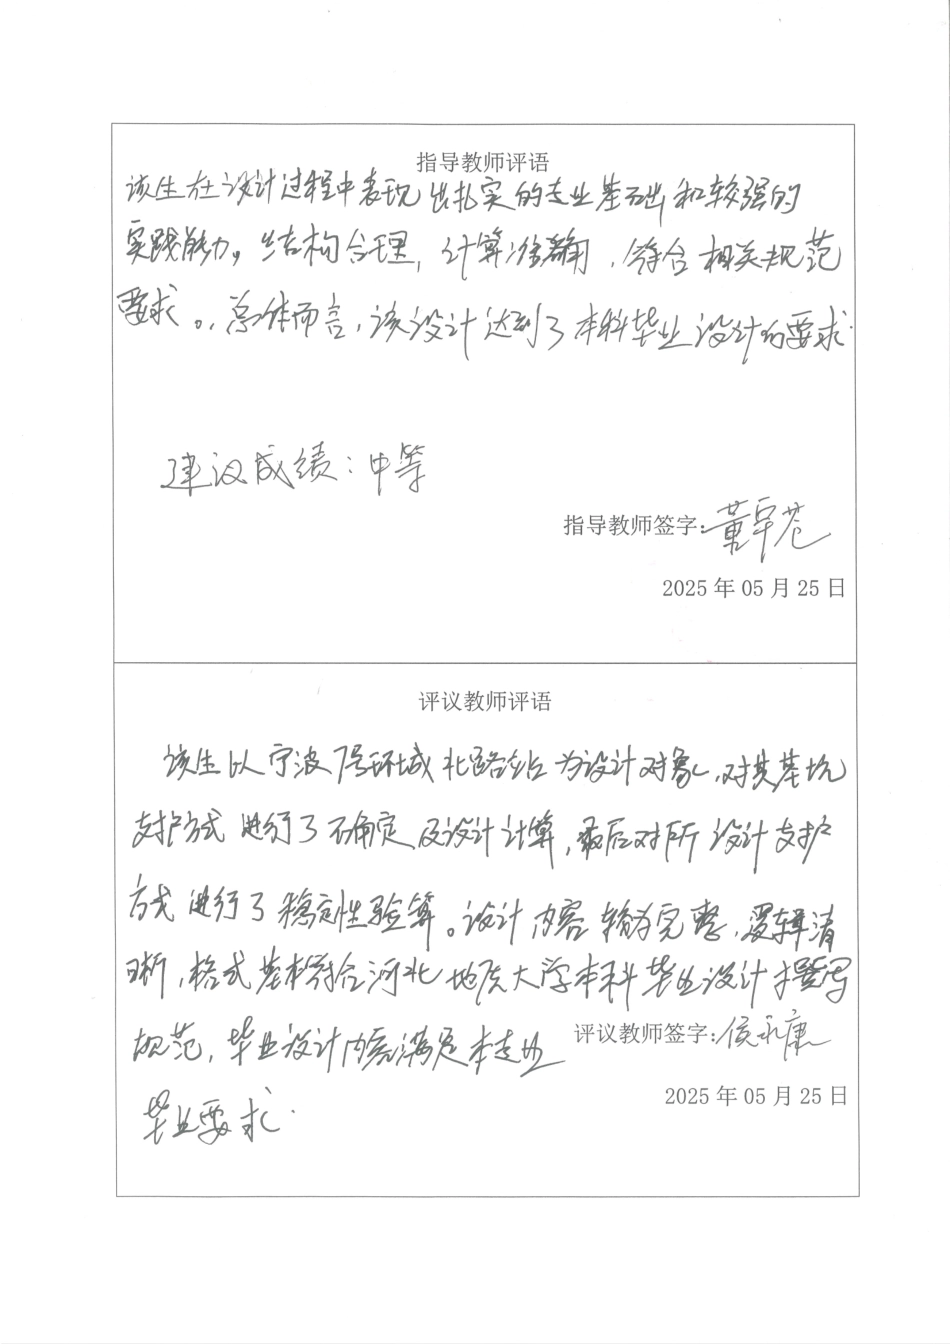 指导教师评语
该生在设计过程中表现出扎实的专业基础和较强的
实践能力。结构合理，计算准确，符合相关规范
要求。。总体而言，该设计达到了本科毕业设计的要求.
建议成绩：中等
指导教师签字：董
2025 年 05 月 25 日
评议教师评语
该生以宁波7号环城北路站为设计对象，对其基坑
支护方式进行了确定及设计计算，最后对所设计支护
方式进行了稳定性验算。设计内容较为完整，逻辑清
晰，格式基本符合河北地质大学本科毕业设计撰写
规范，毕业设计内容满足本专业
评议教师签字：侯永康
2025 年 05 月 25 日
毕业要求.